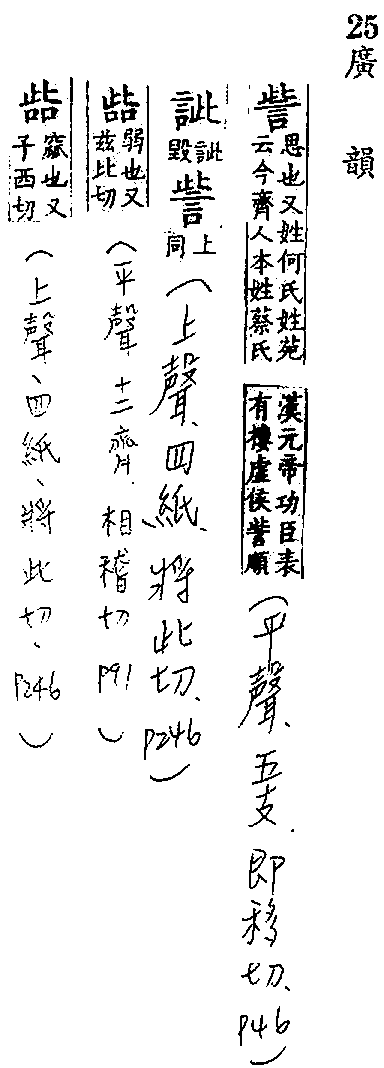 25廣韻
訾思也又姓何氏姓苑云今齊人本姓蔡氏漢元帝功臣表有樓虛侯訾順（平聲、五支、即移切、P46）
訿訿毀訾上同（上聲、四紙、將此切、P246）
㫮弱也又茲比切（平聲十二齊、相稽切P91）
㫮窳也又子西切（上聲、四紙、將此切、P246）